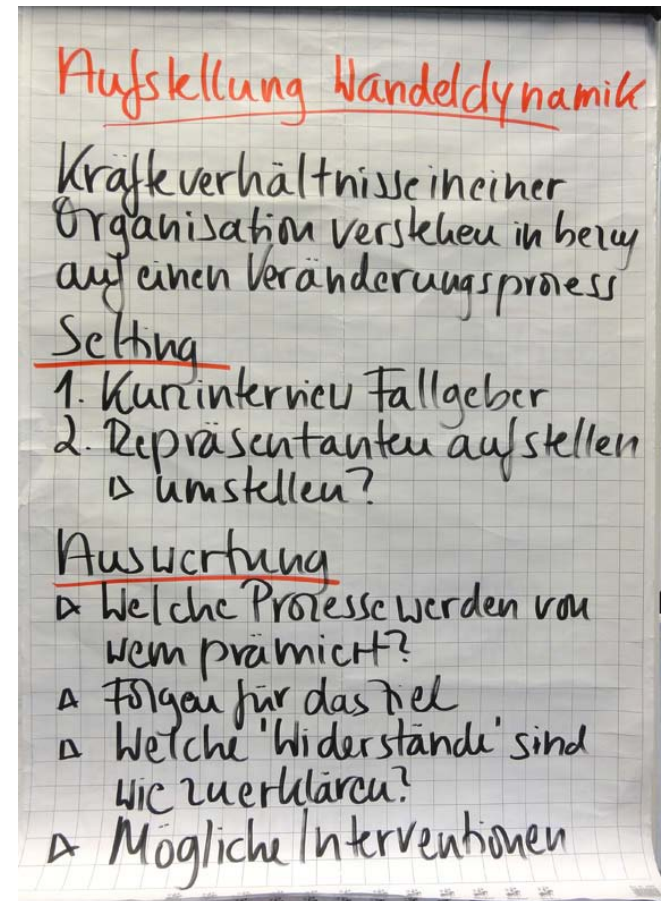 Aufstellung Wandeldynamik
Kräfteverhältnisse in einer
Organisation verstehen in bezug
auf einen Veränderungsprozess
Setting
1. Kurzinterview Fallgeber
2. Repräsentanten aufstellen
▷ umstellen?
Auswertung
▷ Welche Prozesse werden von
wem prämiert?
▷ Folgen für das Ziel
▷ Welche 'Widerstände' sind
wie zu erklären?
▷ Mögliche Interventionen